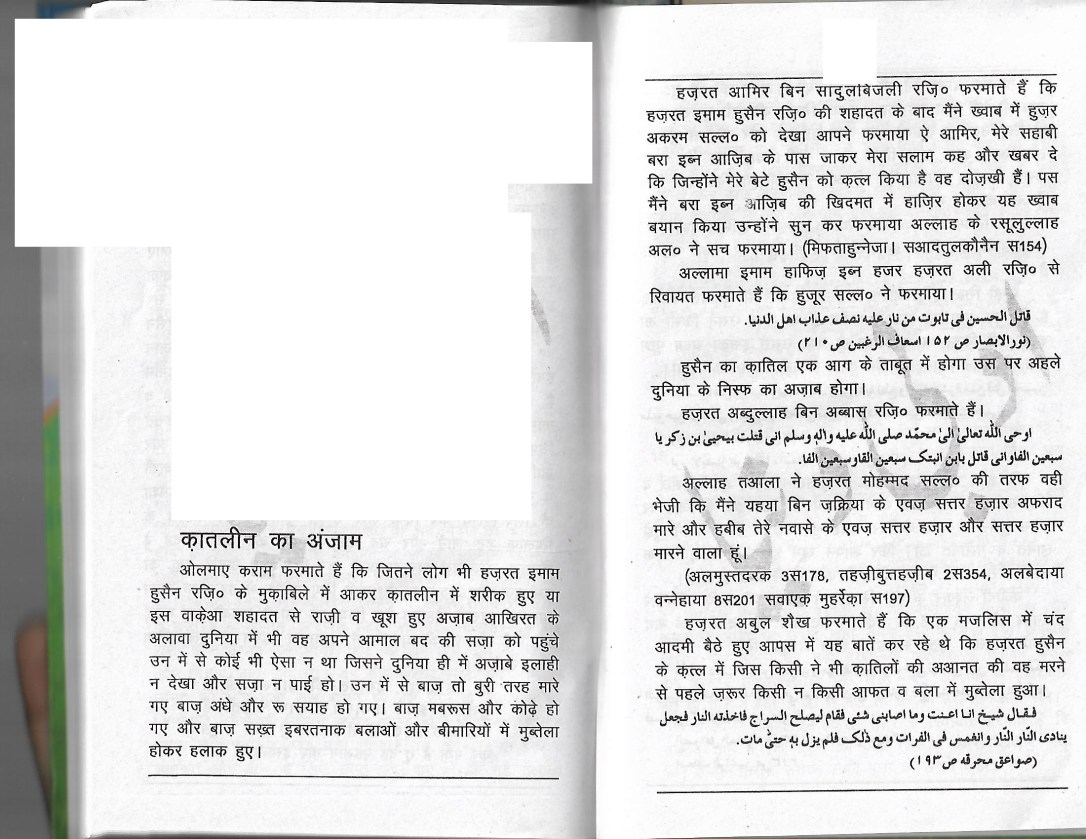 क़ातलीन का अंजाम
ओलमाए कराम फरमाते हैं कि जितने लोग भी हज़रत इमाम
हुसैन रज़ि० के मुक़ाबिले में आकर क़ातलीन में शरीक हुए या
इस वाक़ेआ शहादत से राज़ी व खूश हुए अज़ाब आखिरत के
अलावा दुनिया में भी वह अपने आमाल बद की सज़ा को पहुंचे
उन में से कोई भी ऐसा न था जिसने दुनिया ही में अज़ाबे इलाही
न देखा और सज़ा न पाई हो। उन में से बाज़ तो बुरी तरह मारे
गए बाज़ अंधे और रू सयाह हो गए। बाज़ मबरूस और कोढ़े हो
गए और बाज़ सख़्त इबरतनाक बलाओं और बीमारियों में मुब्तेला
होकर हलाक हुए।
हज़रत आमिर बिन सादुलबिजली रज़ि० फरमाते हैं कि
हज़रत इमाम हुसैन रज़ि० की शहादत के बाद मैंने ख्वाब में हुज़ूर
अकरम सल्ल० को देखा आपने फरमाया ऐ आमिर, मेरे सहाबी
बरा इब्न आज़िब के पास जाकर मेरा सलाम कह और खबर दे
कि जिन्होंने मेरे बेटे हुसैन को क़त्ल किया है वह दोज़खी हैं। पस
मैंने बरा इब्न आज़िब की खिदमत में हाज़िर होकर यह ख्वाब
बयान किया उन्होंने सुन कर फरमाया अल्लाह के रसूलुल्लाह
अल० ने सच फरमाया। (मिफताहुन्नेजा। सआदतुलकौनैन स154)
अल्लामा इमाम हाफिज़ इब्न हजर हज़रत अली रज़ि० से
रिवायत फरमाते हैं कि हुज़ूर सल्ल० ने फरमाया।
قاتل الحسين فى تابوت من نار عليه نصف عذاب اهل الدنيا.
(نورالابصار ص ۱۵۲ اسعاف الرغبين ص ۲۱۰)
हुसैन का क़ातिल एक आग के ताबूत में होगा उस पर अहले
दुनिया के निस्फ का अज़ाब होगा।
हज़रत अब्दुल्लाह बिन अब्बास रज़ि० फरमाते हैं।
اوحى الله تعالىٰ الىٰ محمّد صلى الله عليه واله وسلم انى قتلت بيحيىٰ بن زكريا
سبعين الفاوانى قاتل بابن ابنتك سبعين الفاوسبعين الفا.
अल्लाह तआला ने हज़रत मोहम्मद सल्ल० की तरफ वही
भेजी कि मैंने यहया बिन ज़क्रिया के एवज़ सत्तर हज़ार अफराद
मारे और हबीब तेरे नवासे के एवज़ सत्तर हज़ार और सत्तर हज़ार
मारने वाला हूं।
(अलमुस्तदरक 3स178, तहज़ीबुत्तहज़ीब 2स354, अलबेदाया
वन्नेहाया 8स201 सवाएक़ मुहर्रेक़ा स197)
हज़रत अबुल शैख फरमाते हैं कि एक मजलिस में चंद
आदमी बैठे हुए आपस में यह बातें कर रहे थे कि हज़रत हुसैन
के क़त्ल में जिस किसी ने भी क़ातिलों की अआनत की वह मरने
से पहले ज़रूर किसी न किसी आफत व बला में मुब्तेला हुआ।
فقال شيخ انا اعنت وما اصابنى شئى فقام ليصلح السراج فاخذته النار فجعل
ينادى النار النّار وانغمس فى الفرات ومع ذلك فلم يزل به حتىّٰ مات.
(صواعق محرقه ص ۱۹۳)